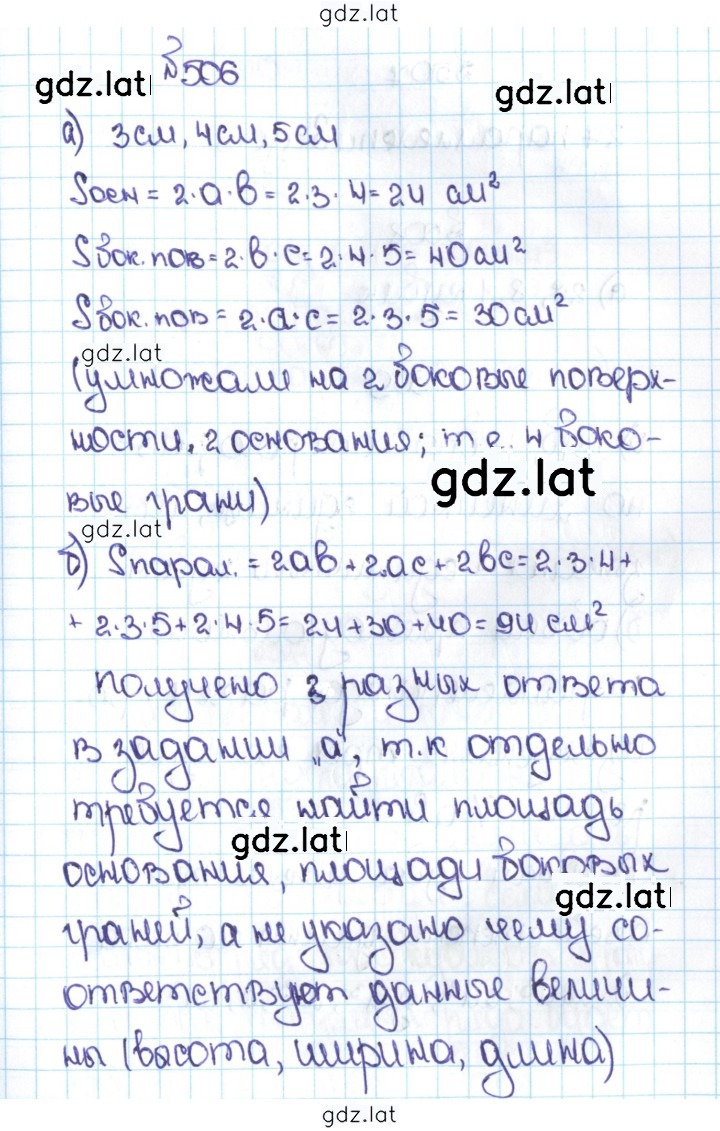 gdz.lat
№506
gdz.lat
gdz.lat
а) 3 см, 4 см, 5 см
Sосн = 2·a·b = 2·3·4 = 24 см²
Sбок.пов = 2·b·c = 2·4·5 = 40 см²
Sбок.пов = 2·a·c = 2·3·5 = 30 см²
gdz.lat
(умножали на 2 боковые поверх-
ности, 2 основания; т е. 4 боко-
gdz.lat
вые грани)
gdz.lat
б) Sпарал. = 2ab + 2ac + 2bc = 2·3·4 +
+ 2·3·5 + 2·4·5 = 24 + 30 + 40 = 94 см²
получено 3 разных ответа
в задании „а", т.к отдельно
требуется найти площадь
gdz.lat
основания, площади боковых
gdz.lat
граней, а не указано чему со-
ответствует данные величи-
ны (высота, ширина, длина)
gdz.lat